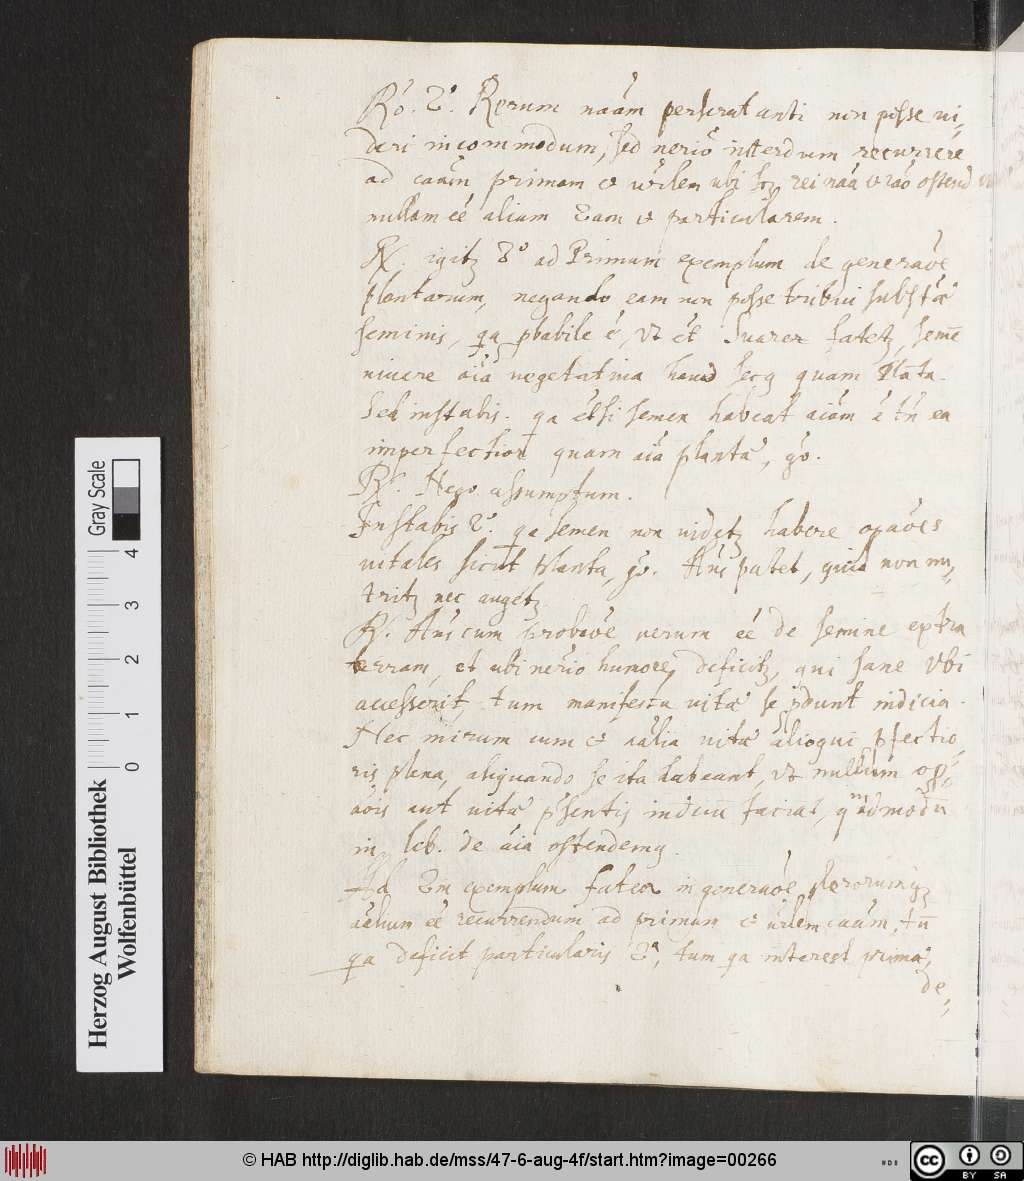 Ro. 2°. Rerum naãm perscrutanti non posse vi„
deri incommodum, sed nec̃rio interdum recurrere
ad caãm primam et vr̃lem ubi rei naã et rão ostend
nullam eẽ aliam 2am et particularem.
R. igitʒ 2° ad Primum exemplum de generaõe
plantarum, negando eam non posse tribui substæ̃
seminis, qa pbabile ẽ, ut et̃ Suarez fatetʒ, semẽ
vivere aĩa vegetativa haud secg quam Plãta.
Sed instabis. qa etsi semen habeat aĩam ẽ tñ ea
imperfectior quam aĩa plantæ, go.
R. Nego assumptum.
Instabis 2°. qa semen non videtʒ habere opãões
vitales sicut planta, go. Añs patet, quia non nu„
tritʒ nec augetʒ.
R. Añs cum probaõe verum eẽ de semine extra
terram, et ubi nec̃rio humore deficitʒ, qui sane ubi
accesserit, tum manifesta vitæ se pdunt indicia.
Nec mirum cum et aãlia vitæ alioqui pfectio„
ris plena, aliquando se ita habeant, ut nullum op„
aõis aut vitæ pñsentis indiciũ faciãt, qmadmodũ
in lcb. de aĩa ostendemg.
Ad 2m exemplum fateor in generaõe plerorumqʒ
aãlium eẽ recurrendum ad primam et vr̃lem caãm, tũ
qa deficit particularis 2a, tum qa interest primæ,
de„
Gray Scale
0 1 2 3 4
Herzog August Bibliothek
Wolfenbüttel
© HAB http://diglib.hab.de/mss/47-6-aug-4f/start.htm?image=00266
cc BY SA